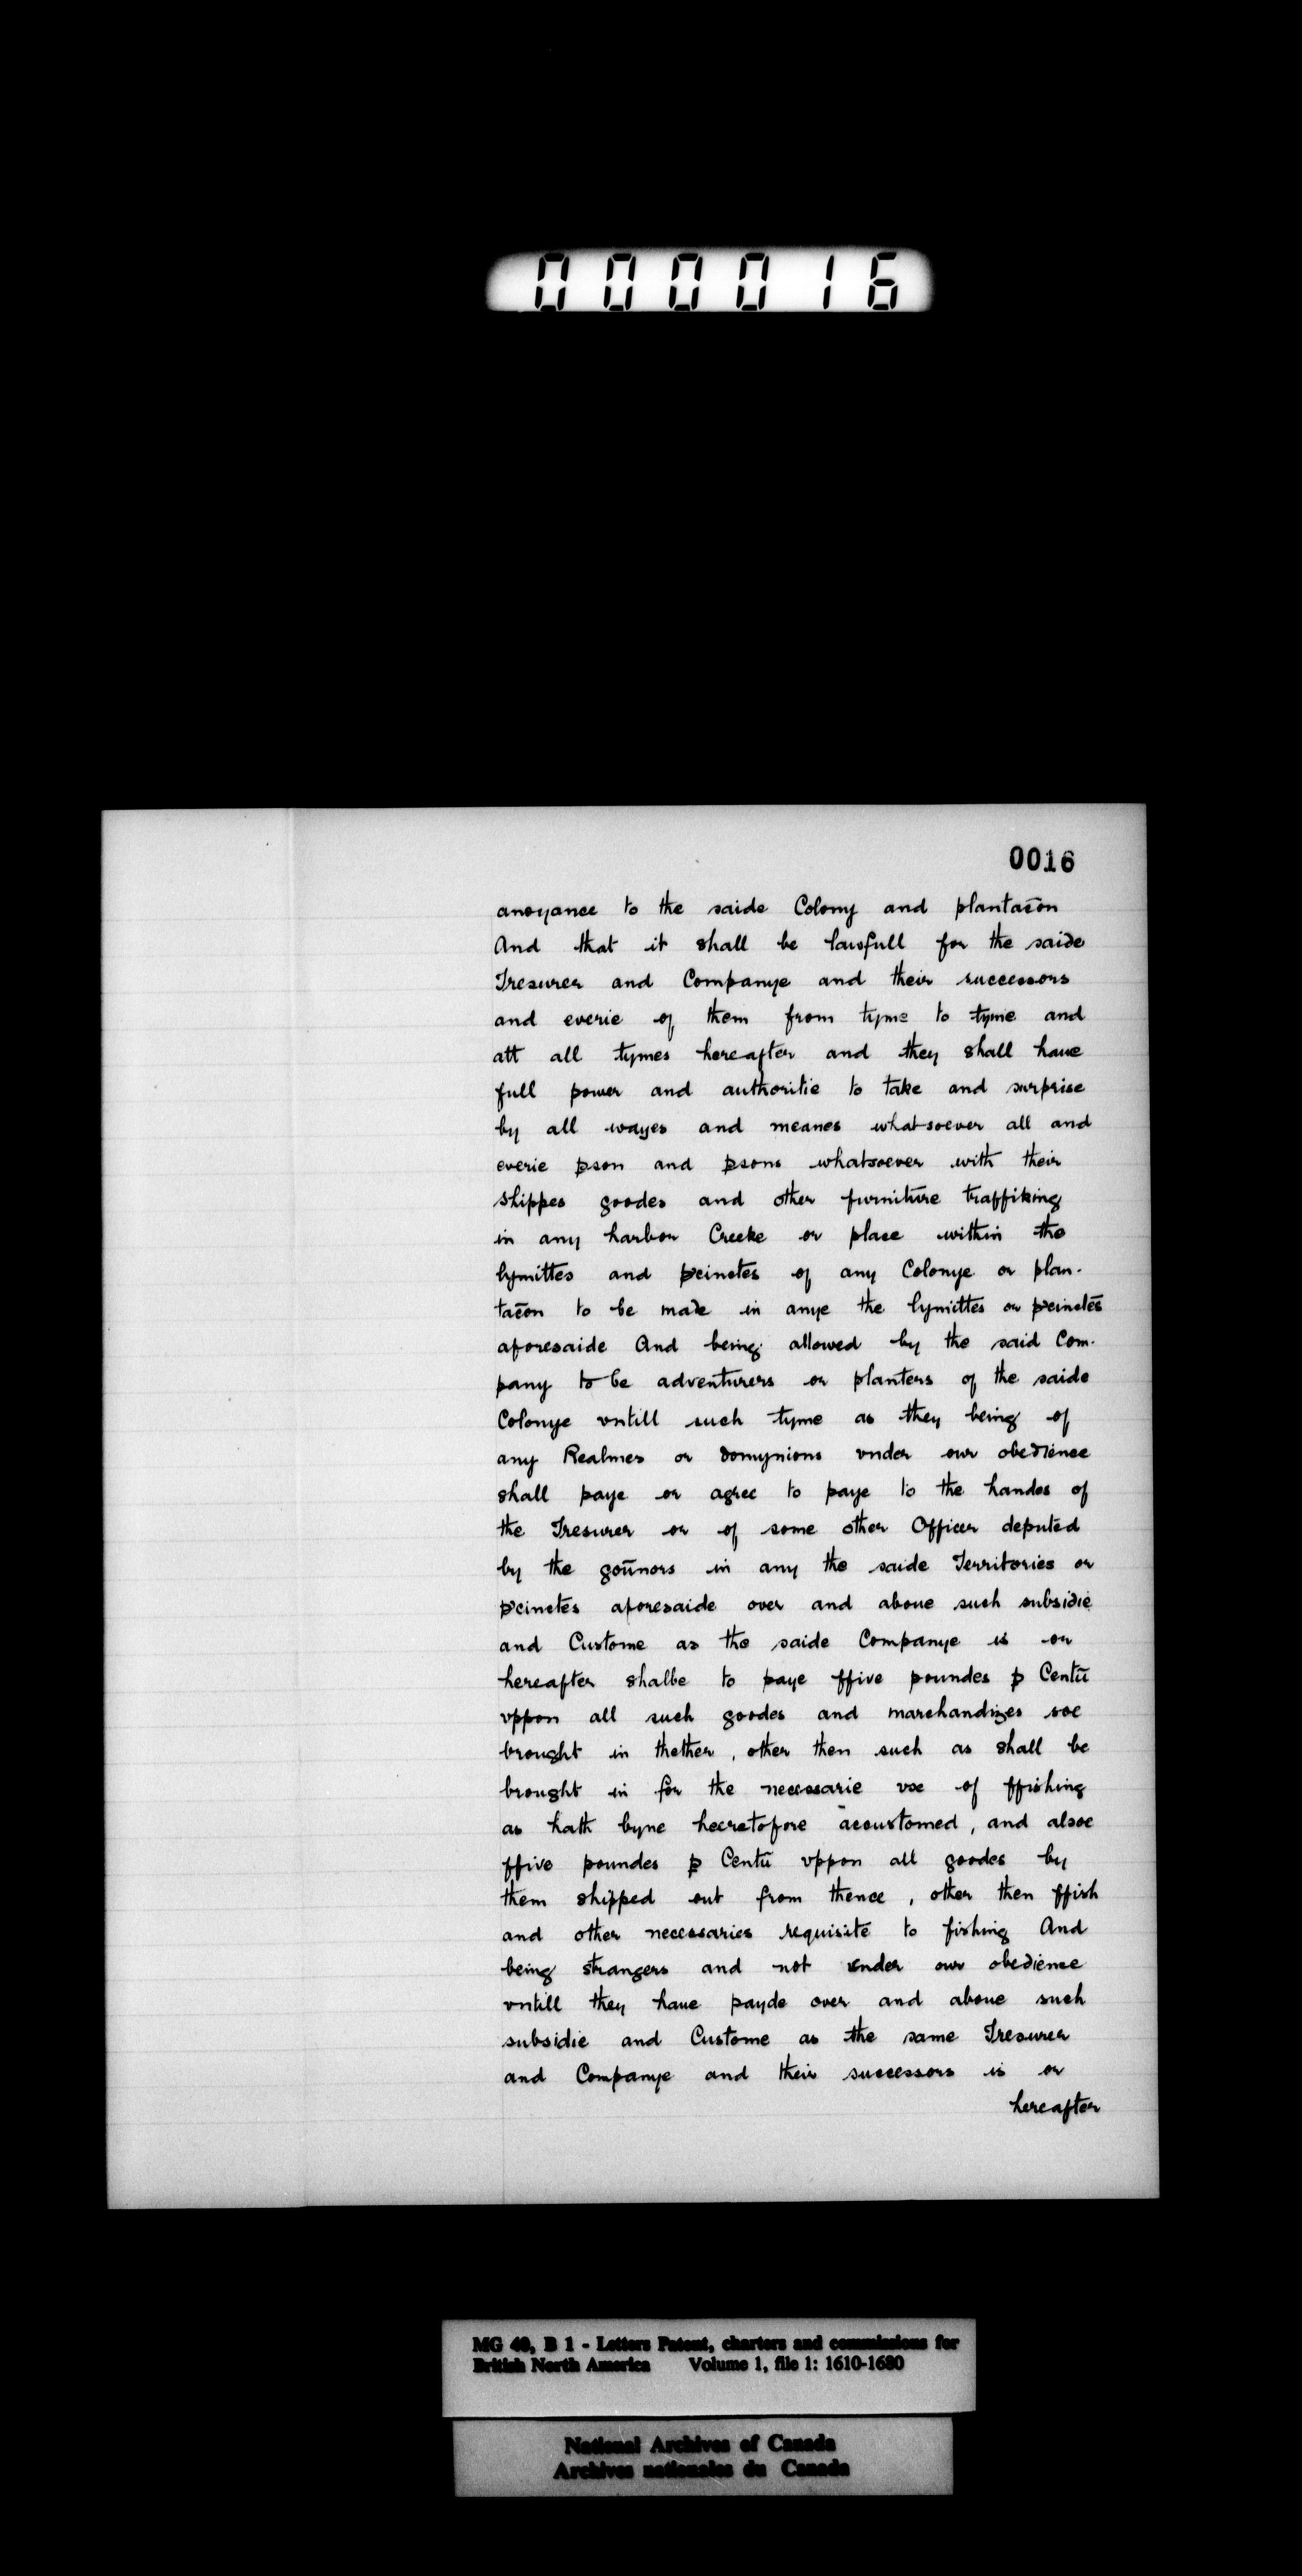 000016
0016
anoyance to the saide Colony and plantac̄on
And that it shall be lawfull for the saide
Tresurer and Companye and their successors
and everie of them from tyme to tyme and
att all tymes hereafter and they shall haue
full power and authoritie to take and surprise
by all wayes and meanes whatsoever all and
everie ꝑson and ꝑsons whatsoever with their
shippes goodes and other furniture traffiking
in any harbor Creeke or place within the
lymittes and p̄cinctes of any Colonye or plan-
tac̄on to be made in anye the lymittes or p̄cinctes
aforesaide And being allowed by the said Com-
pany to be adventurers or planters of the saide
Colonye vntill such tyme as they being of
any Realmes or domynions vnder our obedience
shall paye or agree to paye to the handes of
the Tresurer or of some other Officer deputed
by the gou̅nors in any the saide Territories or
p̄cinctes aforesaide over and aboue such subsidie
and Custome as the saide Companye is or
hereafter shalbe to paye ffive poundes ꝑ Centū
vppon all such goodes and marchandizes soe
brought in thether, other then such as shall be
brought in for the necessarie vse of ffishing
as hath byne heeretofore accustomed, and alsoe
ffive poundes ꝑ Centū vppon all goodes by
them shipped out from thence, other then ffish
and other necessaries requisite to fishing And
being strangers and not vnder our obedience
vntill they haue payde over and aboue such
subsidie and Custome as the same Tresurer
and Companye and their successors is or
hereafter
MG 40, B 1 - Letters Patent, charters and commissions for
British North America Volume 1, file 1: 1610-1680
National Archives of Canada
Archives nationales du Canada